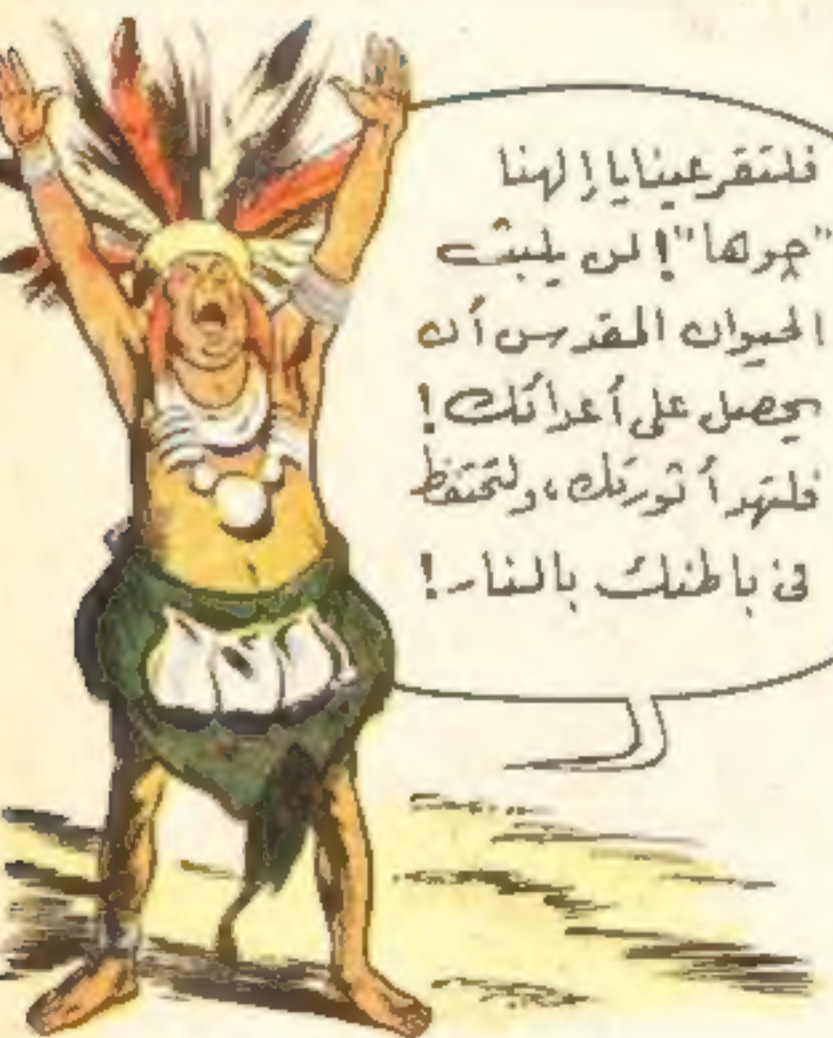 فلتقر عينا يا إلهنا
"جوها"! لن يلبث
الحيوان المقدس أن
يحصل على أعدائك!
فلتهدأ ثورتك، ولتحتفظ
فى باطنك بالنار!